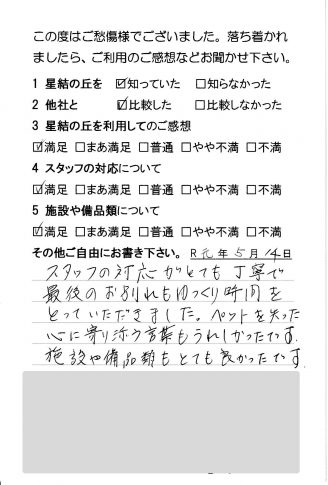 この度はご愁傷様でございました。落ち着かれ
ましたら、ご利用のご感想などお聞かせ下さい。
1 星結の丘を ☑知っていた ☐知らなかった
2 他社と ☑比較した ☐比較しなかった
3 星結の丘を利用してのご感想
☑満足 ☐まあ満足 ☐普通 ☐やや不満 ☐不満
4 スタッフの対応について
☑満足 ☐まあ満足 ☐普通 ☐やや不満 ☐不満
5 施設や備品類について
☑満足 ☐まあ満足 ☐普通 ☐やや不満 ☐不満
その他ご自由にお書き下さい。 R元年5月14日
スタッフの対応がとても丁寧で
最後のお別れもゆっくり時間を
とっていただきました。ペットを失った
心に寄り添う言葉もうれしかったです.
施設や備品類もとても良かったです